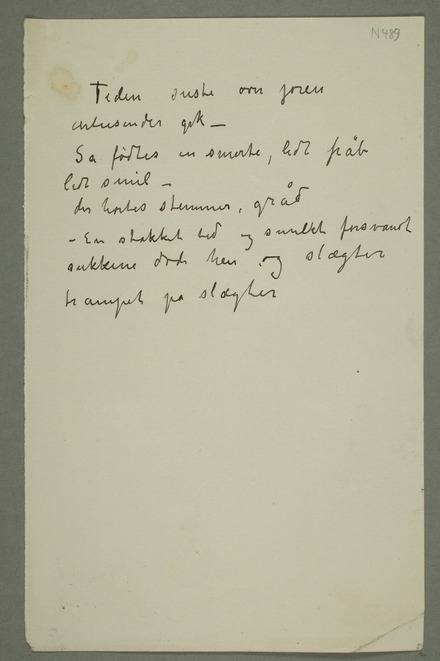 N489
Tiden suste over joren
årtusender gik –
Så fødtes en smerte, lidt håb
lidt smil –
der hørtes stemmer, gråd
– En stakket tid og smilet forsvandt
sukkene døde hen og slægter
trampet på slægter